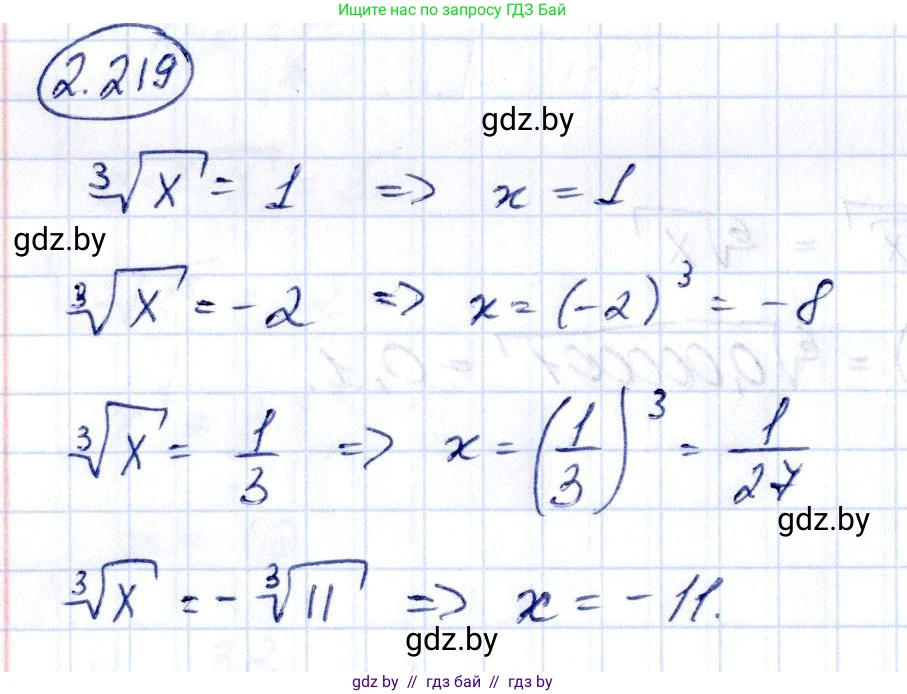 Ищите нас по запросу ГДЗ Бай
2.219
gdz.by
∛x = 1 => x = 1
gdz.by
∛x = -2 => x = (-2)³ = -8
∛x = 1/3 => x = (1/3)³ = 1/27
gdz.by
∛x = -∛11 => x = -11.
gdz.by
gdz.by // гдз бай // гдз by